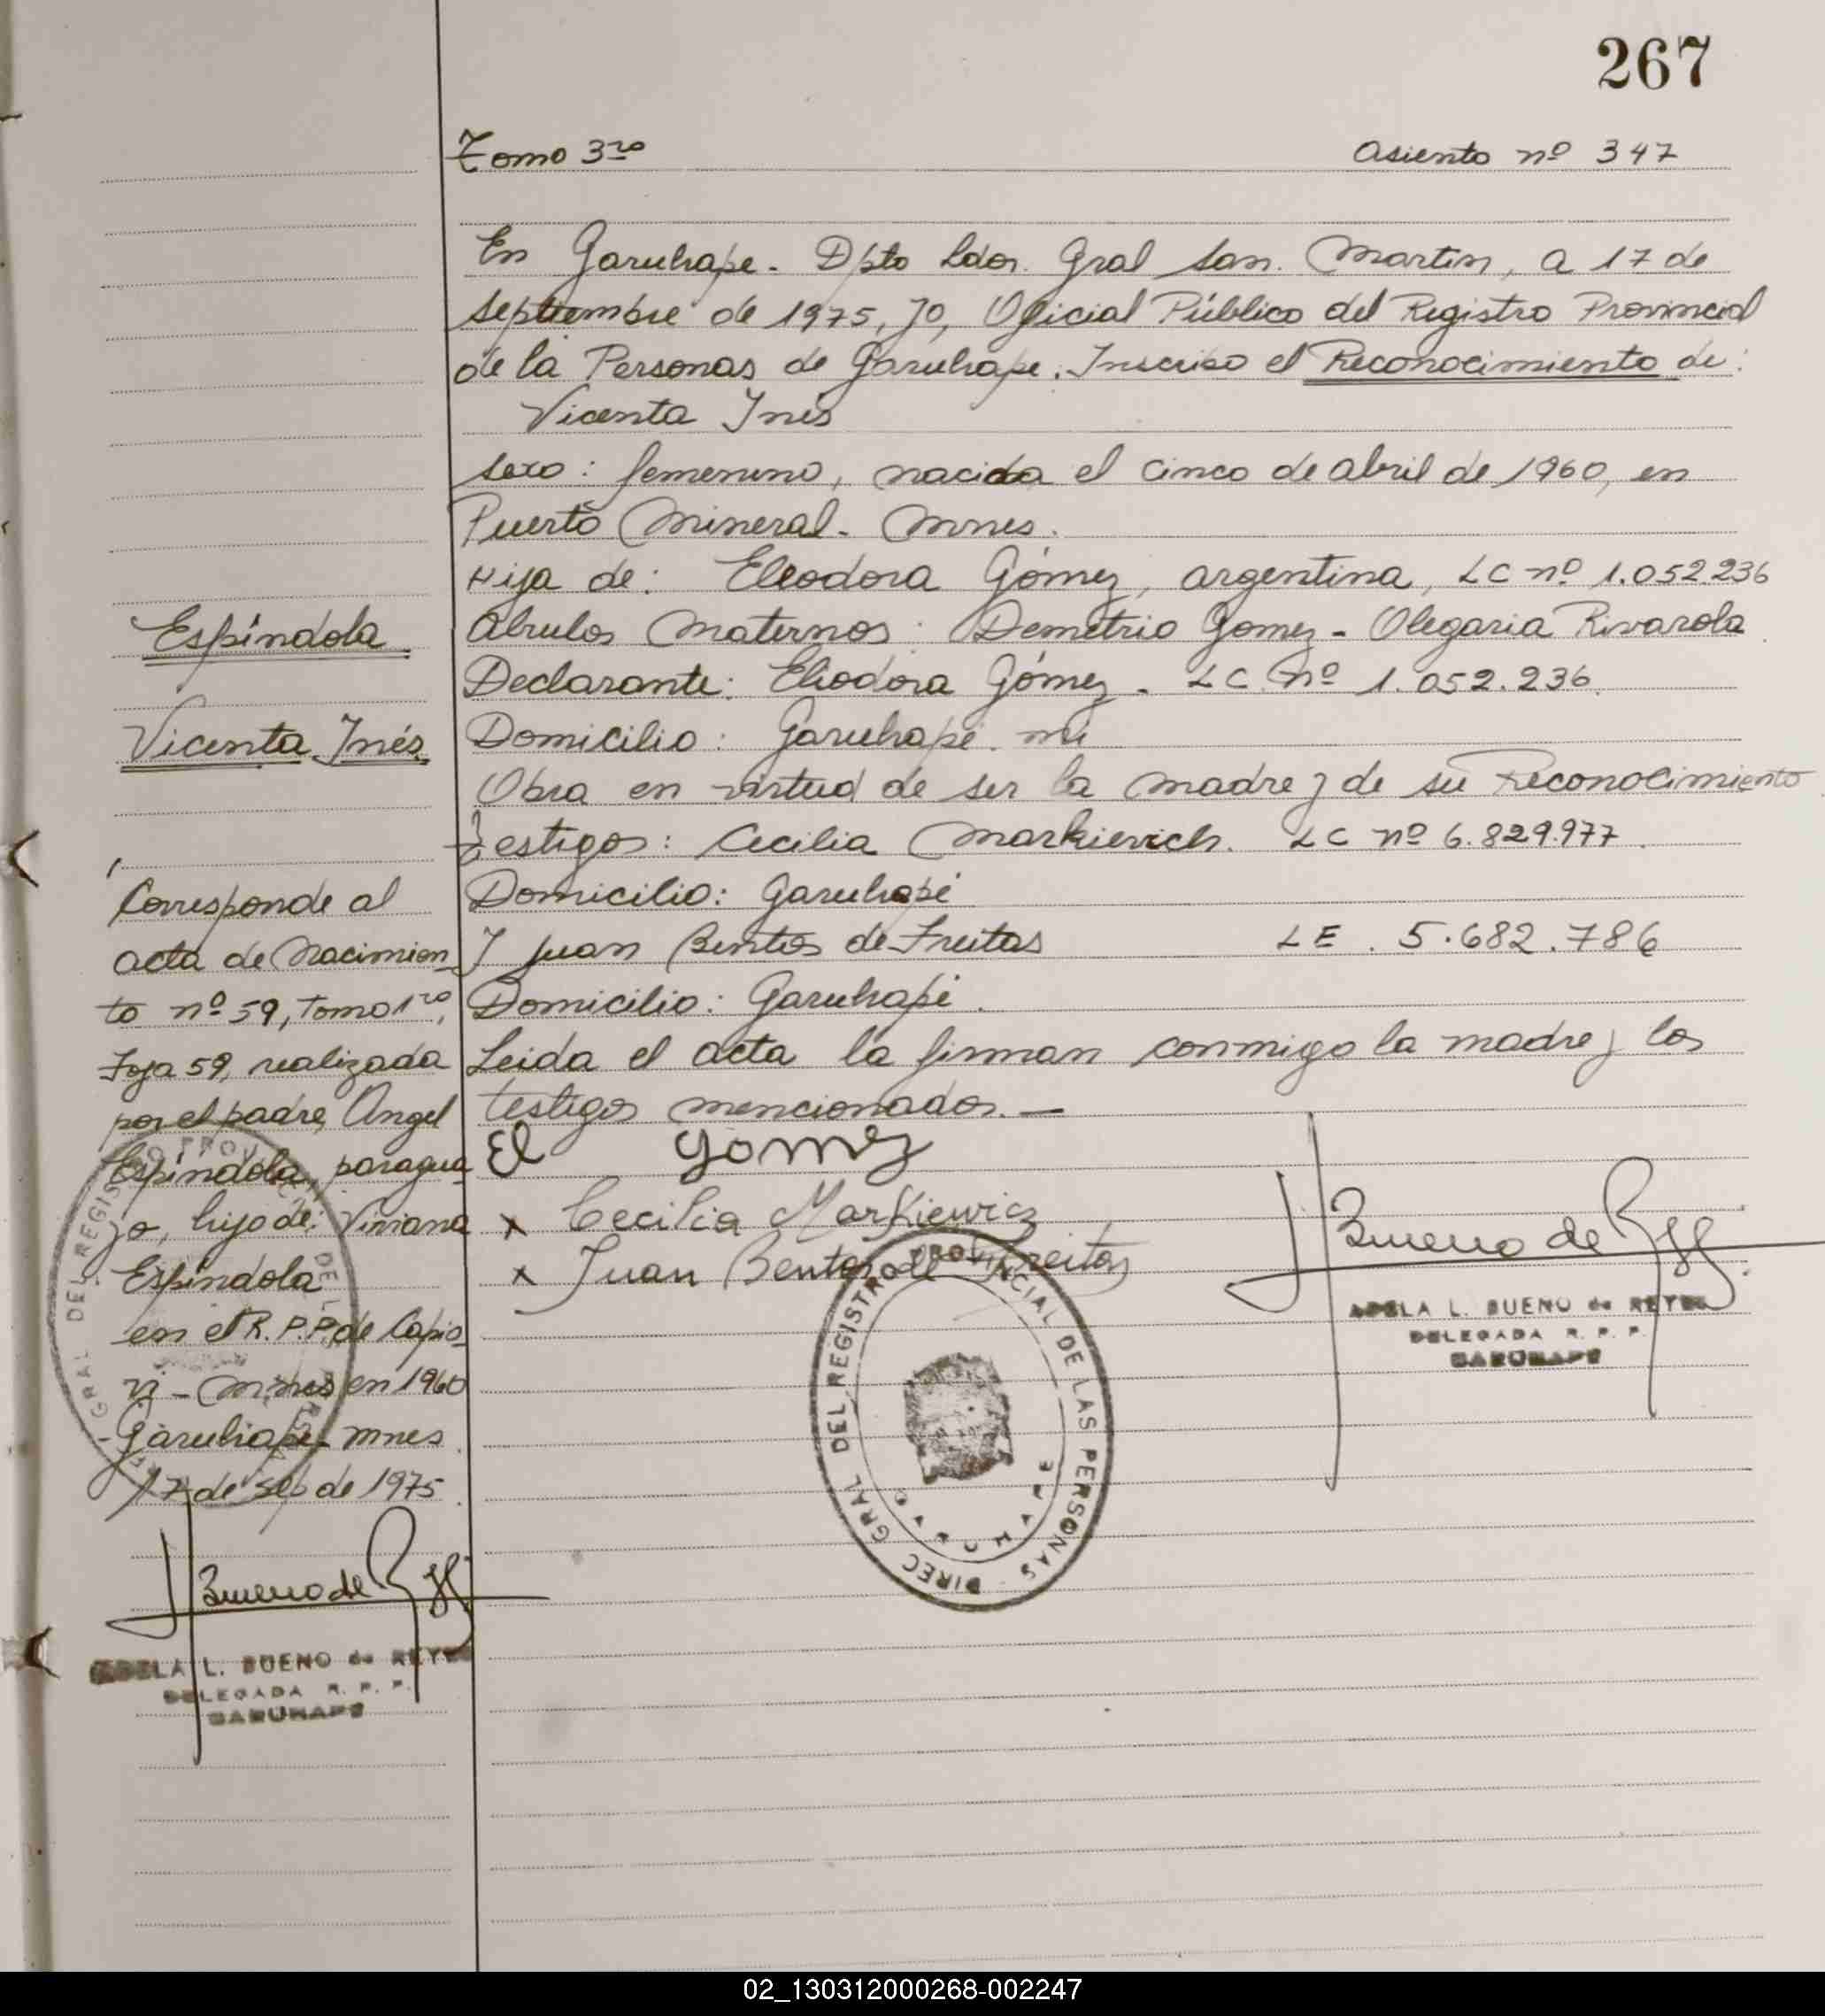 267
Tomo 3ro
Asiento nº 347
En Garuhape. Dpto Ldor. Gral San. Martin, a 17 de
septiembre de 1975, yo, Oficial Público del Registro Provincial
de la Personas de Garuhape. Inscribo el Reconocimiento de:
Vicenta Inés
sexo: femenino, nacida el cinco de abril de 1960, en
Puerto Mineral. Mnes.
Hija de: Eleodora Gómez, argentina, LC nº 1.052.236
Abuelos Maternos: Demetrio Gomez - Olegaria Rivarola
Declarante: Eliodora Gómez. LC. nº 1.052.236.
Domicilio: Garuhapé.
Obra en virtud de ser la madre y de su Reconocimiento
Testigos: Cecilia Markievich. LC nº 6.829.977.
Domicilio: Garuhapé
Y Juan Bentos de Freitas LE. 5.682.786
Domicilio: Garuhapé.
Leida el acta la firman conmigo la madre y los
testigos mencionados.—
El Gomez
x Cecilia Markiewicz
x Juan Bentos de Freitas
Bueno de
ADELA L. BUENO de REYES
DELEGADA R. P. P.
GARUHAPE
DIREC GRAL DEL REGISTRO PROVINCIAL DE LAS PERSONAS -
GARUHAPE
Espíndola
Vicenta Inés
Corresponde al
acta de Nacimien
to nº 59, Tomo 1ro,
Foja 59, realizada
por el padre, Angel
Espíndola, paragua
yo, hijo de: Viviana
Espíndola
en el R.P.P. de Capio
vi - Mnes en 1960
Garuhape - mnes.
17 de sep de 1975.
Bueno de
ADELA L. BUENO de REYES
DELEGADA R. P. P.
GARUHAPE
GRAL DEL REGISTRO PROVINCIAL DE
02_130312000268-002247